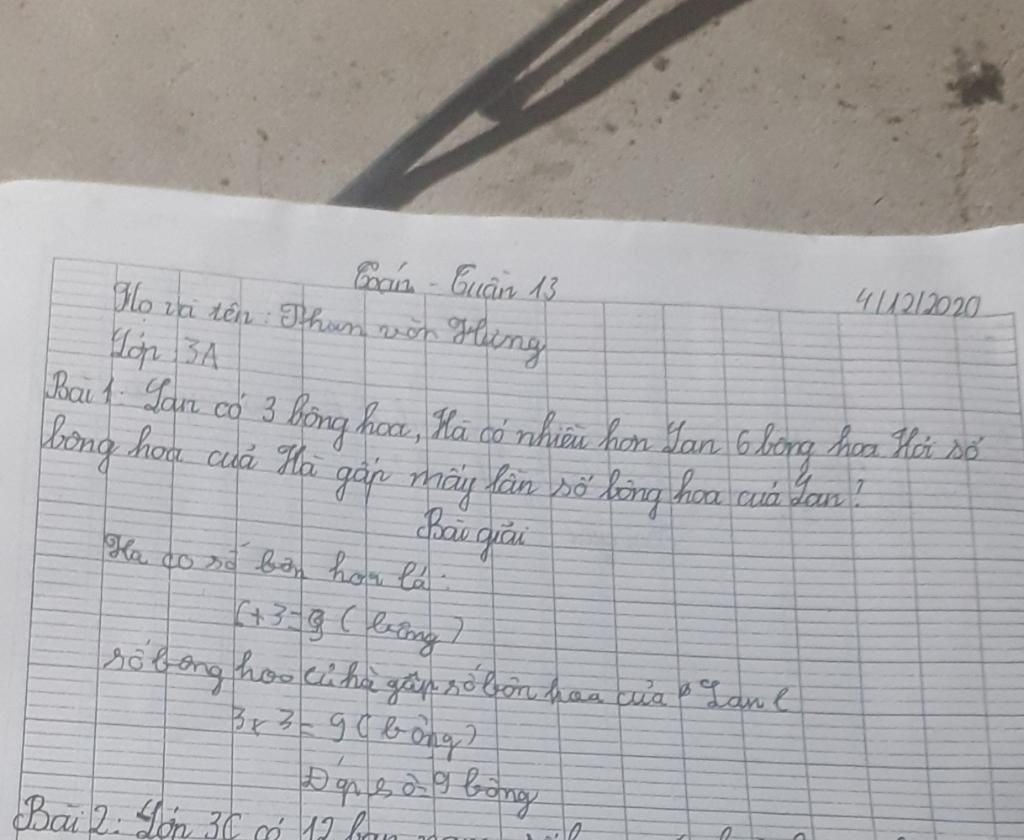 Toán - Tuần 13
4/12/2020
Họ và tên: Phan văn Hùng
Lớp 3A
Bài 1: Lan có 3 bông hoa, Hà có nhiều hơn Lan 6 bông hoa Hỏi số
bông hoa của Hà gấp mấy lần số bông hoa của Lan?
Bài giải
Hà có số bôn hoa là:
6+3=9 (bông)
số bong hoa củ hà gấp số bôn hoa của Lan
3x3=9 (bông)
Đáp số 9 bông
Bài 2: Lớp 3C có 12 bạn